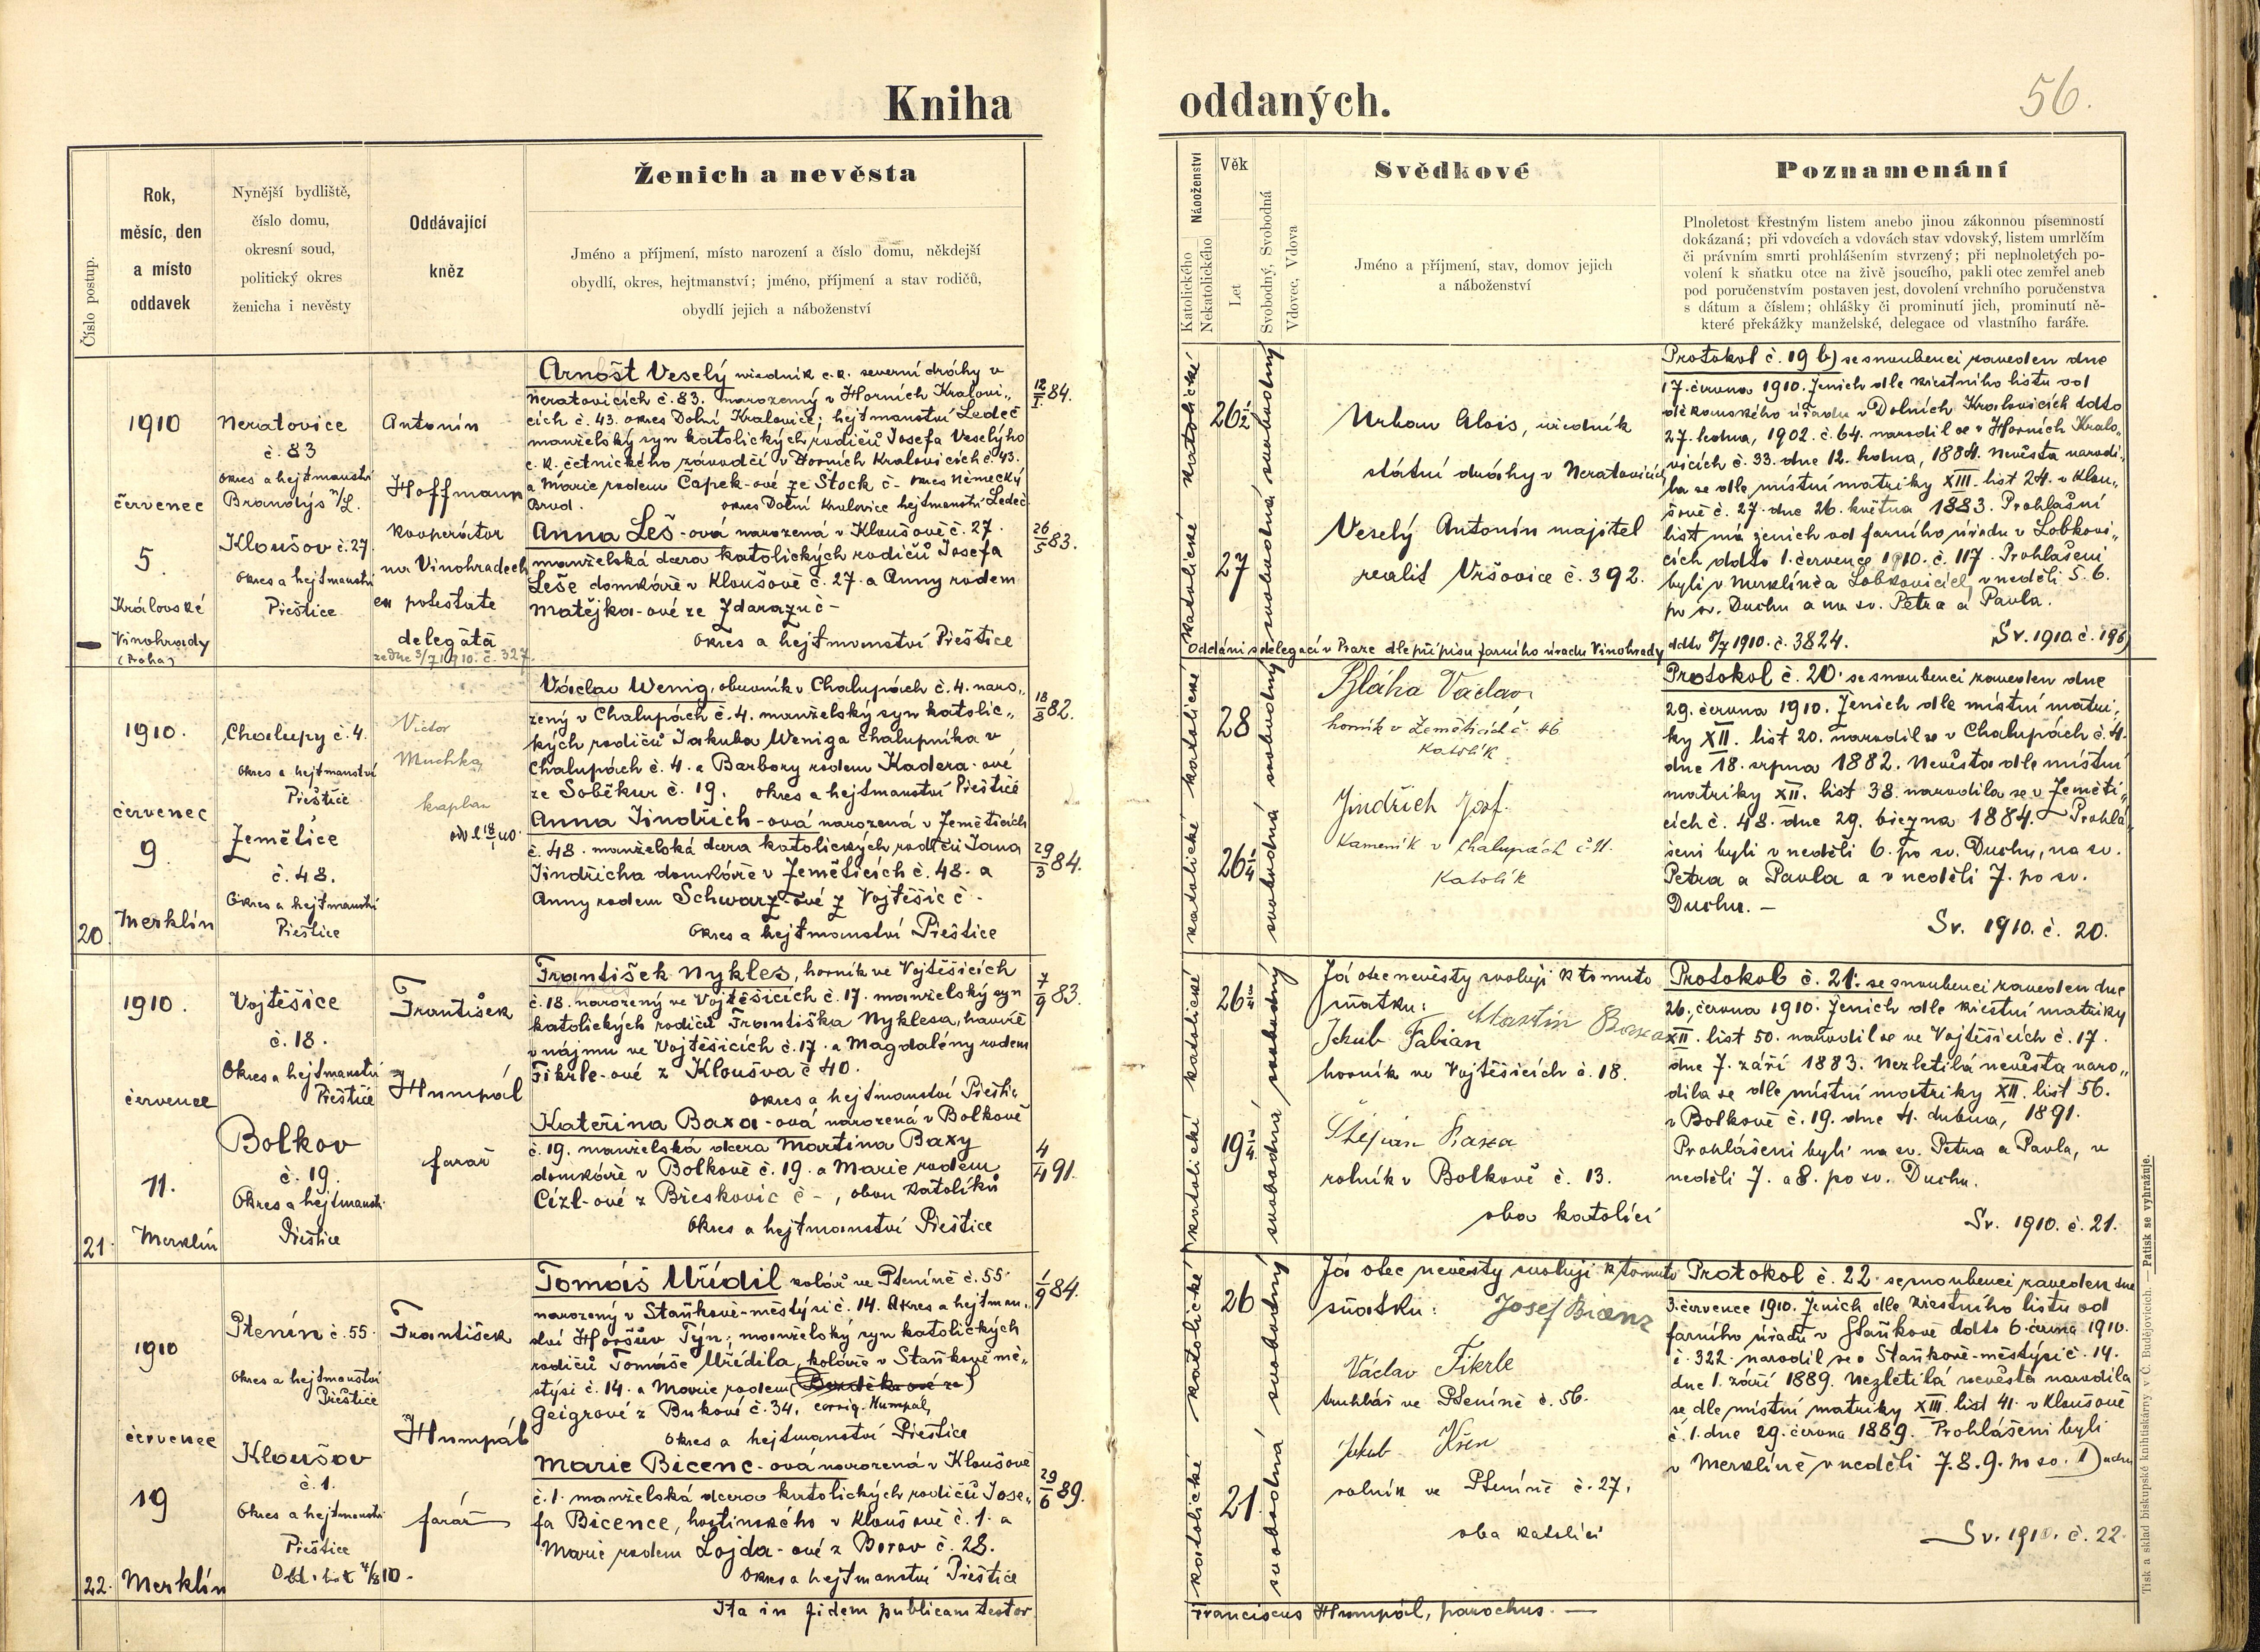 Kniha oddaných.
56.
Číslo postup.
Rok,
měsíc, den
a místo
oddavek
Nynější bydliště,
číslo domu,
okresní soud,
politický okres
ženicha i nevěsty
Oddávající
kněz
Ženich a nevěsta
Jméno a příjmení, místo narození a číslo domu, někdejší
obydlí, okres, hejtmanství; jméno, příjmení a stav rodičů,
obydlí jejich a náboženství
Náboženství
Katolického
Nekatolického
Věk
Let
Svobodný, Svobodná
Vdovec, Vdova
Svědkové
Jméno a příjmení, stav, domov jejich
a náboženství
Poznamenání
Plnoletost křestným listem anebo jinou zákonnou písemností
dokázaná; při vdovcích a vdovách stav vdovský, listem umrlčím
či právním smrti prohlášením stvrzený; při neplnoletých po-
volení k sňatku otce na živě jsoucího, pakli otec zemřel aneb
pod poručenstvím postaven jest, dovolení vrchního poručenstva
s dátum a číslem; ohlášky či prominutí jich, prominutí ně-
které překážky manželské, delegace od vlastního faráře.
1910
červenec
5.
Královské
Vinohrady
(Praha)
Neratovice
č. 83
okres a hejtmanství
Brandýs n/L.
Kloušov č. 27.
Okres a hejtmanství
Přeštice
Antonín
Hoffmann
kooperátor
na Vinohradech
ex potestate
delegáta
ze dne 3/7 1910. č. 327.
Arnošt Veselý úředník c. k. severní dráhy v
Neratovicích č. 83. narozený v Horních Kralovi„
cích č. 43. okres Dolní Kralovice; hejtmanství Ledeč
manželský syn katolických rodičů Josefa Veselýho
c. k. četnického závodčí v Horních Kralovicích č. 43.
a Marie rodem Čapek-ové ze Štock č - okres Německý
Brod. okres Dolní Kralovice hejtmanství Ledeč
12/1 84.
Anna Leš-ová narozená v Kloušově č. 27.
manželská dcera katolických rodičů Josefa
Leše domkáře v Kloušově č. 27. a Anny rodem
Matějka-ové ze Zdaraz č -
okres a hejtmanství Přeštice
26/5 83.
katolické katolické
26½
27
svobodná svobodný
Urban Alois, úředník
státní dráhy v Neratovicích
Veselý Antonín majitel
realit Vršovice č. 392.
Protokol č. 19 b) se snoubenci zaveden dne
17. června 1910. Ženich dle křestního listu od
děkanského úřadu v Dolních Kralovicích ddto
27. ledna, 1902. č. 64. narodil se v Horních Kralo„
vicích č. 33. dne 12. ledna, 1884. Nevěsta narodi„
la se dle místní matriky XIII. list 24. v Klou„
šově č. 27. dne 26. května 1883. Prohlášní
list má ženich od farního úřadu v Lobkovi„
cích ddto 1. července 1910. č. 117. Prohlášeni
byli v Merklíně a Lobkovicích v neděli 5. 6.
po sv. Duchu a na sv. Petra a Pavla.
Sv. 1910. č. 19b)
Oddáni s delegací v Praze dle přípisu farního úřadu Vinohrady ddto 5/7 1910. č. 3824.
20.
1910.
červenec
9.
Merklín
Chalupy č. 4.
Okres a hejtmanství
Přeštice
Zemětice
č. 48.
Okres a hejtmanství
Přeštice
Victor
Muchka,
kaplan
Václav Wenig, obuvník v Chalupách č. 4. naro„
zený v Chalupách č. 4. manželský syn katolic„
kých rodičů Jakuba Weniga chalupníka v
Chalupách č. 4. a Barbory rodem Kadera-ové
ze Soběkur č. 19. okres a hejtmanství Přeštice
18/8 82.
Anna Jindřich-ová narozená v Zemětících
č. 48. manželská dcera katolických rodičů Jana
Jindřicha domkáře v Zemětících č. 48. a
Anny rodem Schwarz-ové z Vojtěšic č -
Okres a hejtmanství Přeštice
29/3 84.
katolické katolické
28
26¼
svobodná svobodný
Bláha Václav
horník v Zemětících č. 46
katolík
Jindřich Josf.
Kameník v Chalupách č. 11.
Katolík
Protokol č. 20. se snoubenci zaveden dne
29. června 1910. Ženich dle místní matri„
ky XII. list 20. narodil se v Chalupách č. 4.
dne 18. srpna 1882. Nevěsta dle místní
matriky XII. list 38. narodila se v Zeměti„
cích č. 48. dne 29. března 1884. - Prohlá„
šeni byli v neděli 6. po sv. Duchu, na sv.
Petra a Pavla a v neděli 7. po sv.
Duchu. -
Sv. 1910. č. 20.
21.
1910.
červenec
11.
Merklín
Vojtěšice
č. 18.
Okres a hejtmanství
Přeštice
Bolkov
č. 19.
Okres a hejtmanství
Přeštice
František
Humpál
farář
František Nykles, horník ve Vojtěšicích
č. 18. narozený ve Vojtěšicích č. 17. manželský syn
katolických rodičů Františka Nyklesa, havíře
v nájmu ve Vojtěšicích č. 17. a Magdalény rodem
Fikrle-ové z Kloušva č 40.
okres a hejtmanství Přeštic
7/9 83.
Kateřina Baxa-ová narozená v Bolkově
č. 19. manželská dcera Martina Baxy
domkáře v Bolkově č. 19. a Marie rodem
Cízl-ové z Břeskovic č -, obou katolíků
Okres a hejtmanství Přeštice
4/4 91.
katolické katolické
26¾
19¼
svobodná svobodný
Já otec nevěsty svoluji k tomuto
sňatku: Martin Baxa
Jakub Fabian
horník ve Vojtěšicích č. 18.
Štěpán Baxa
rolník v Bolkově č. 13.
oba katolíci
Protokol č. 21. se snoubenci zaveden dne
26. června 1910. Ženich dle křestní matriky
XII. list 50. narodil se ve Vojtěšicích č. 17.
dne 7. září 1883. Nezletilá nevěsta naro„
dila se dle místní matriky XII. list 56.
v Bolkově č. 19. dne 4. dubna, 1891.
Prohlášeni byli na sv. Petra a Pavla, v
neděli 7. a 8. po sv. Duchu.
Sv. 1910. č. 21.
22.
1910
červenec
19
Merklín
Ptenín č. 55.
Okres a hejtmanství
Přeštice
Kloušov
č. 1.
Okres a hejtmanství
Přeštice
Odd. list 4/8 10.
František
Humpál
farář
Tomáš Uřídil kolář ve Pteníně č. 55.
narozený v Staňkově-městýsi č. 14. Okres a hejtman„
ství Horšův Týn; manželský syn katolických
rodičů Tomáše Uřídila, koláře v Staňkově mě„
stýsi č. 14. a Marie rodem (Bezděka-ové ze)
Geigrové z Bukové č. 34. corrig. Humpál,
Okres a hejtmanství Přeštice
1/9 84.
Marie Bicenc-ová narozená v Kloušově
č. 1. manželská dcera katolických rodičů Jose„
fa Bicence, hostinského v Kloušově č. 1. a
Marie rodem Lojda-ové z Borov č. 28.
Okres a hejtmanství Přeštice
29/6 89.
katolické katolické
26
21.
svobodná svobodný
Já otec nevěsty svoluji k tomuto
sňatku: Josef Bicenz
Václav Fikrle
truhlář ve Pteníně č. 56.
Jakub Křen
rolník ve Pteníně č. 27.
oba katolíci
Protokol č. 22. se snoubenci zaveden dne
3. července 1910. Ženich dle křestního listu od
farního úřadu v Staňkově ddto 6. června 1910.
č. 322. narodil se v Staňkově-městýsi č. 14.
dne 1. září 1889. Nezletilá nevěsta narodila
se dle místní matriky XIII. list 41. v Kloušově
č. 1. dne 29. června 1889. Prohlášeni byli
v Merklíně v neděli 7. 8. 9. po sv. Duchu
Sv. 1910. č. 22.
Ita in fidem publicam testor
Franciscus Humpál, parochus. -
Tisk a sklad biskupské knihtiskárny v Č. Budějovicích. — Patisk se vyhražuje.